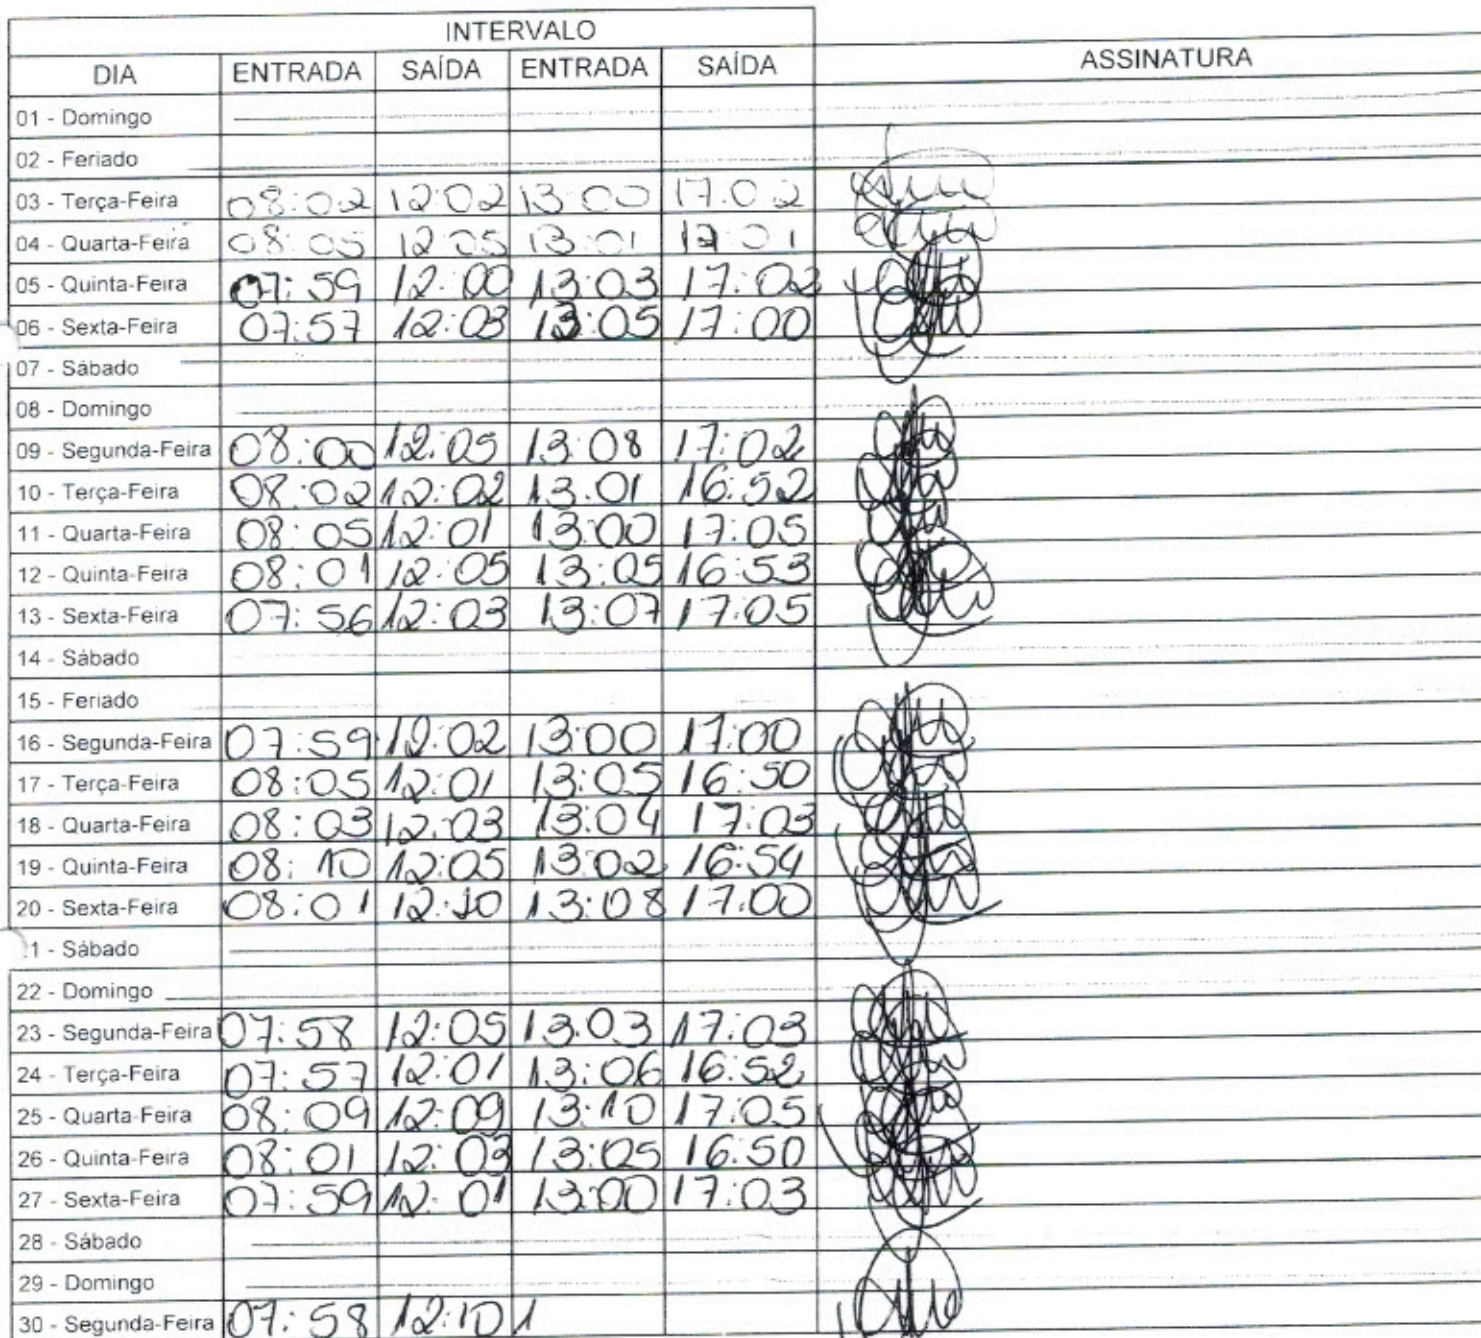 INTERVALO
DIA ENTRADA SAÍDA ENTRADA SAÍDA ASSINATURA
01 - Domingo
02 - Feriado
03 - Terça-Feira 08:02 12:02 13:00 17:02
04 - Quarta-Feira 08:05 12:05 13:01 17:01
05 - Quinta-Feira 07:59 12:00 13:03 17:02
06 - Sexta-Feira 07:57 12:03 13:05 17:00
07 - Sábado
08 - Domingo
09 - Segunda-Feira 08:00 12:05 13:08 17:02
10 - Terça-Feira 08:02 12:02 13:01 16:52
11 - Quarta-Feira 08:05 12:01 13:00 17:05
12 - Quinta-Feira 08:01 12:05 13:05 16:53
13 - Sexta-Feira 07:56 12:03 13:07 17:05
14 - Sábado
15 - Feriado
16 - Segunda-Feira 07:59 12:02 13:00 17:00
17 - Terça-Feira 08:05 12:01 13:05 16:50
18 - Quarta-Feira 08:03 12:03 13:04 17:03
19 - Quinta-Feira 08:10 12:05 13:02 16:54
20 - Sexta-Feira 08:01 12:10 13:08 17:00
21 - Sábado
22 - Domingo
23 - Segunda-Feira 07:58 12:05 13:03 17:03
24 - Terça-Feira 07:57 12:01 13:06 16:52
25 - Quarta-Feira 08:09 12:09 13:10 17:05
26 - Quinta-Feira 08:01 12:03 13:05 16:50
27 - Sexta-Feira 07:59 12:01 13:00 17:03
28 - Sábado
29 - Domingo
30 - Segunda-Feira 07:58 12:10 1